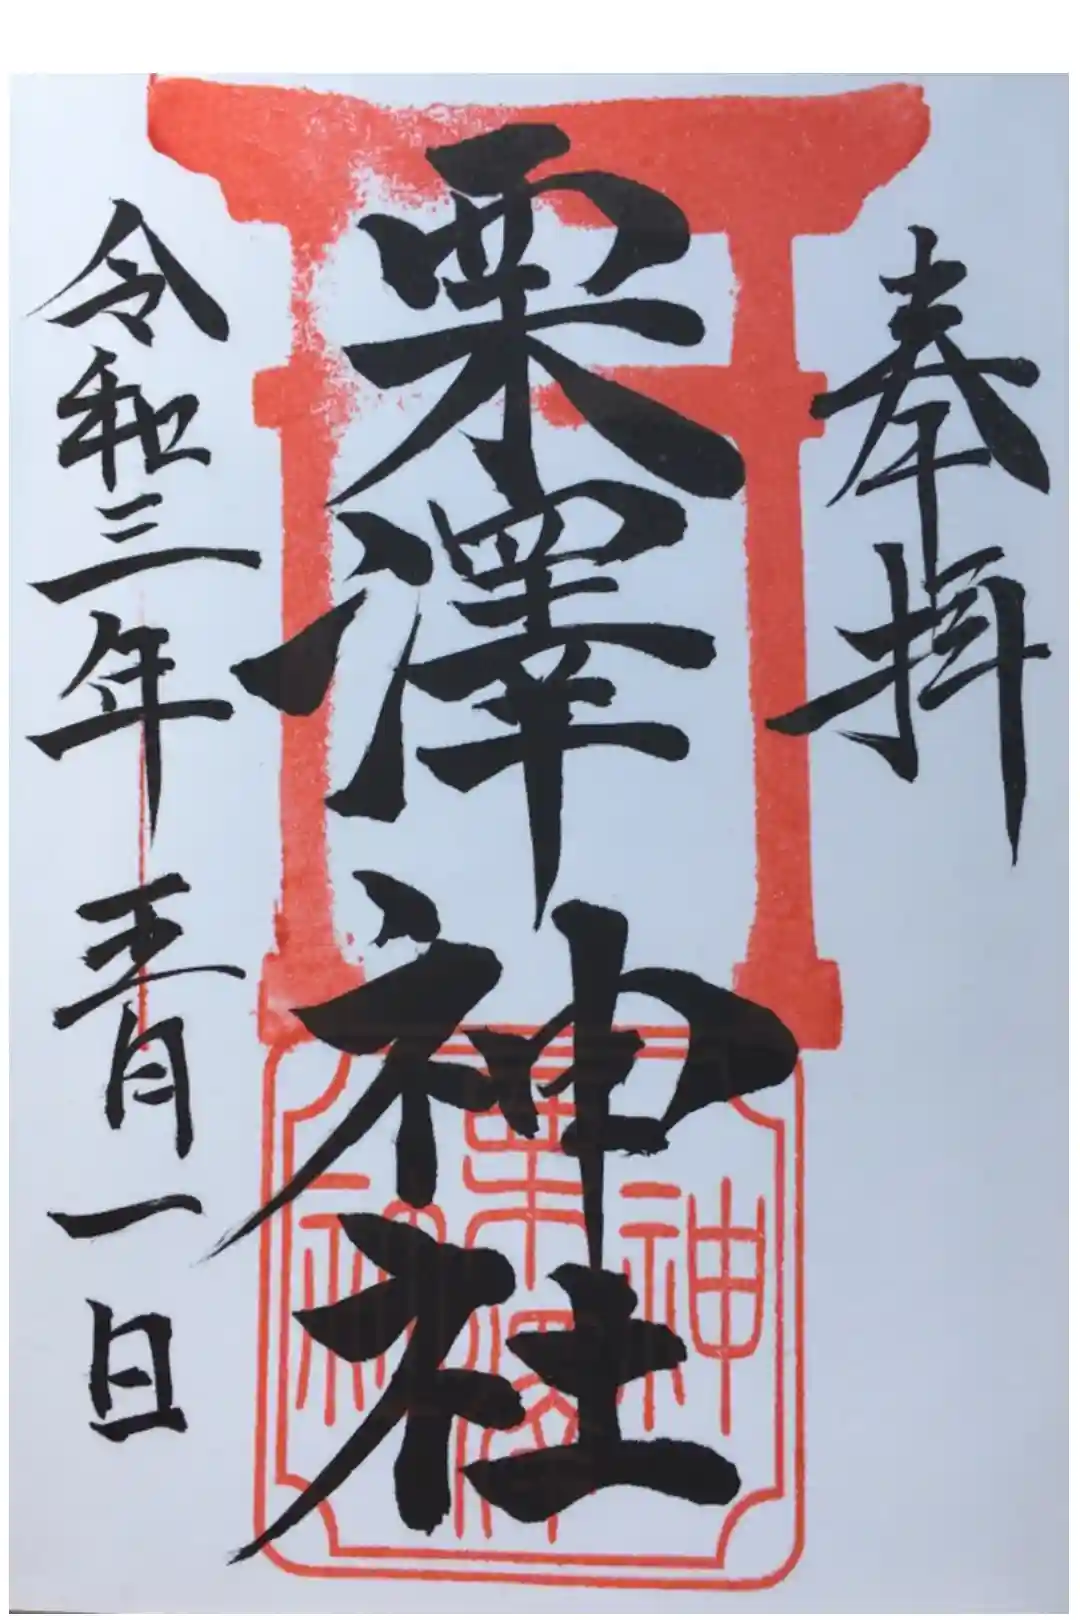 奉拝
栗澤神社
令和三年五月一日
栗澤神社